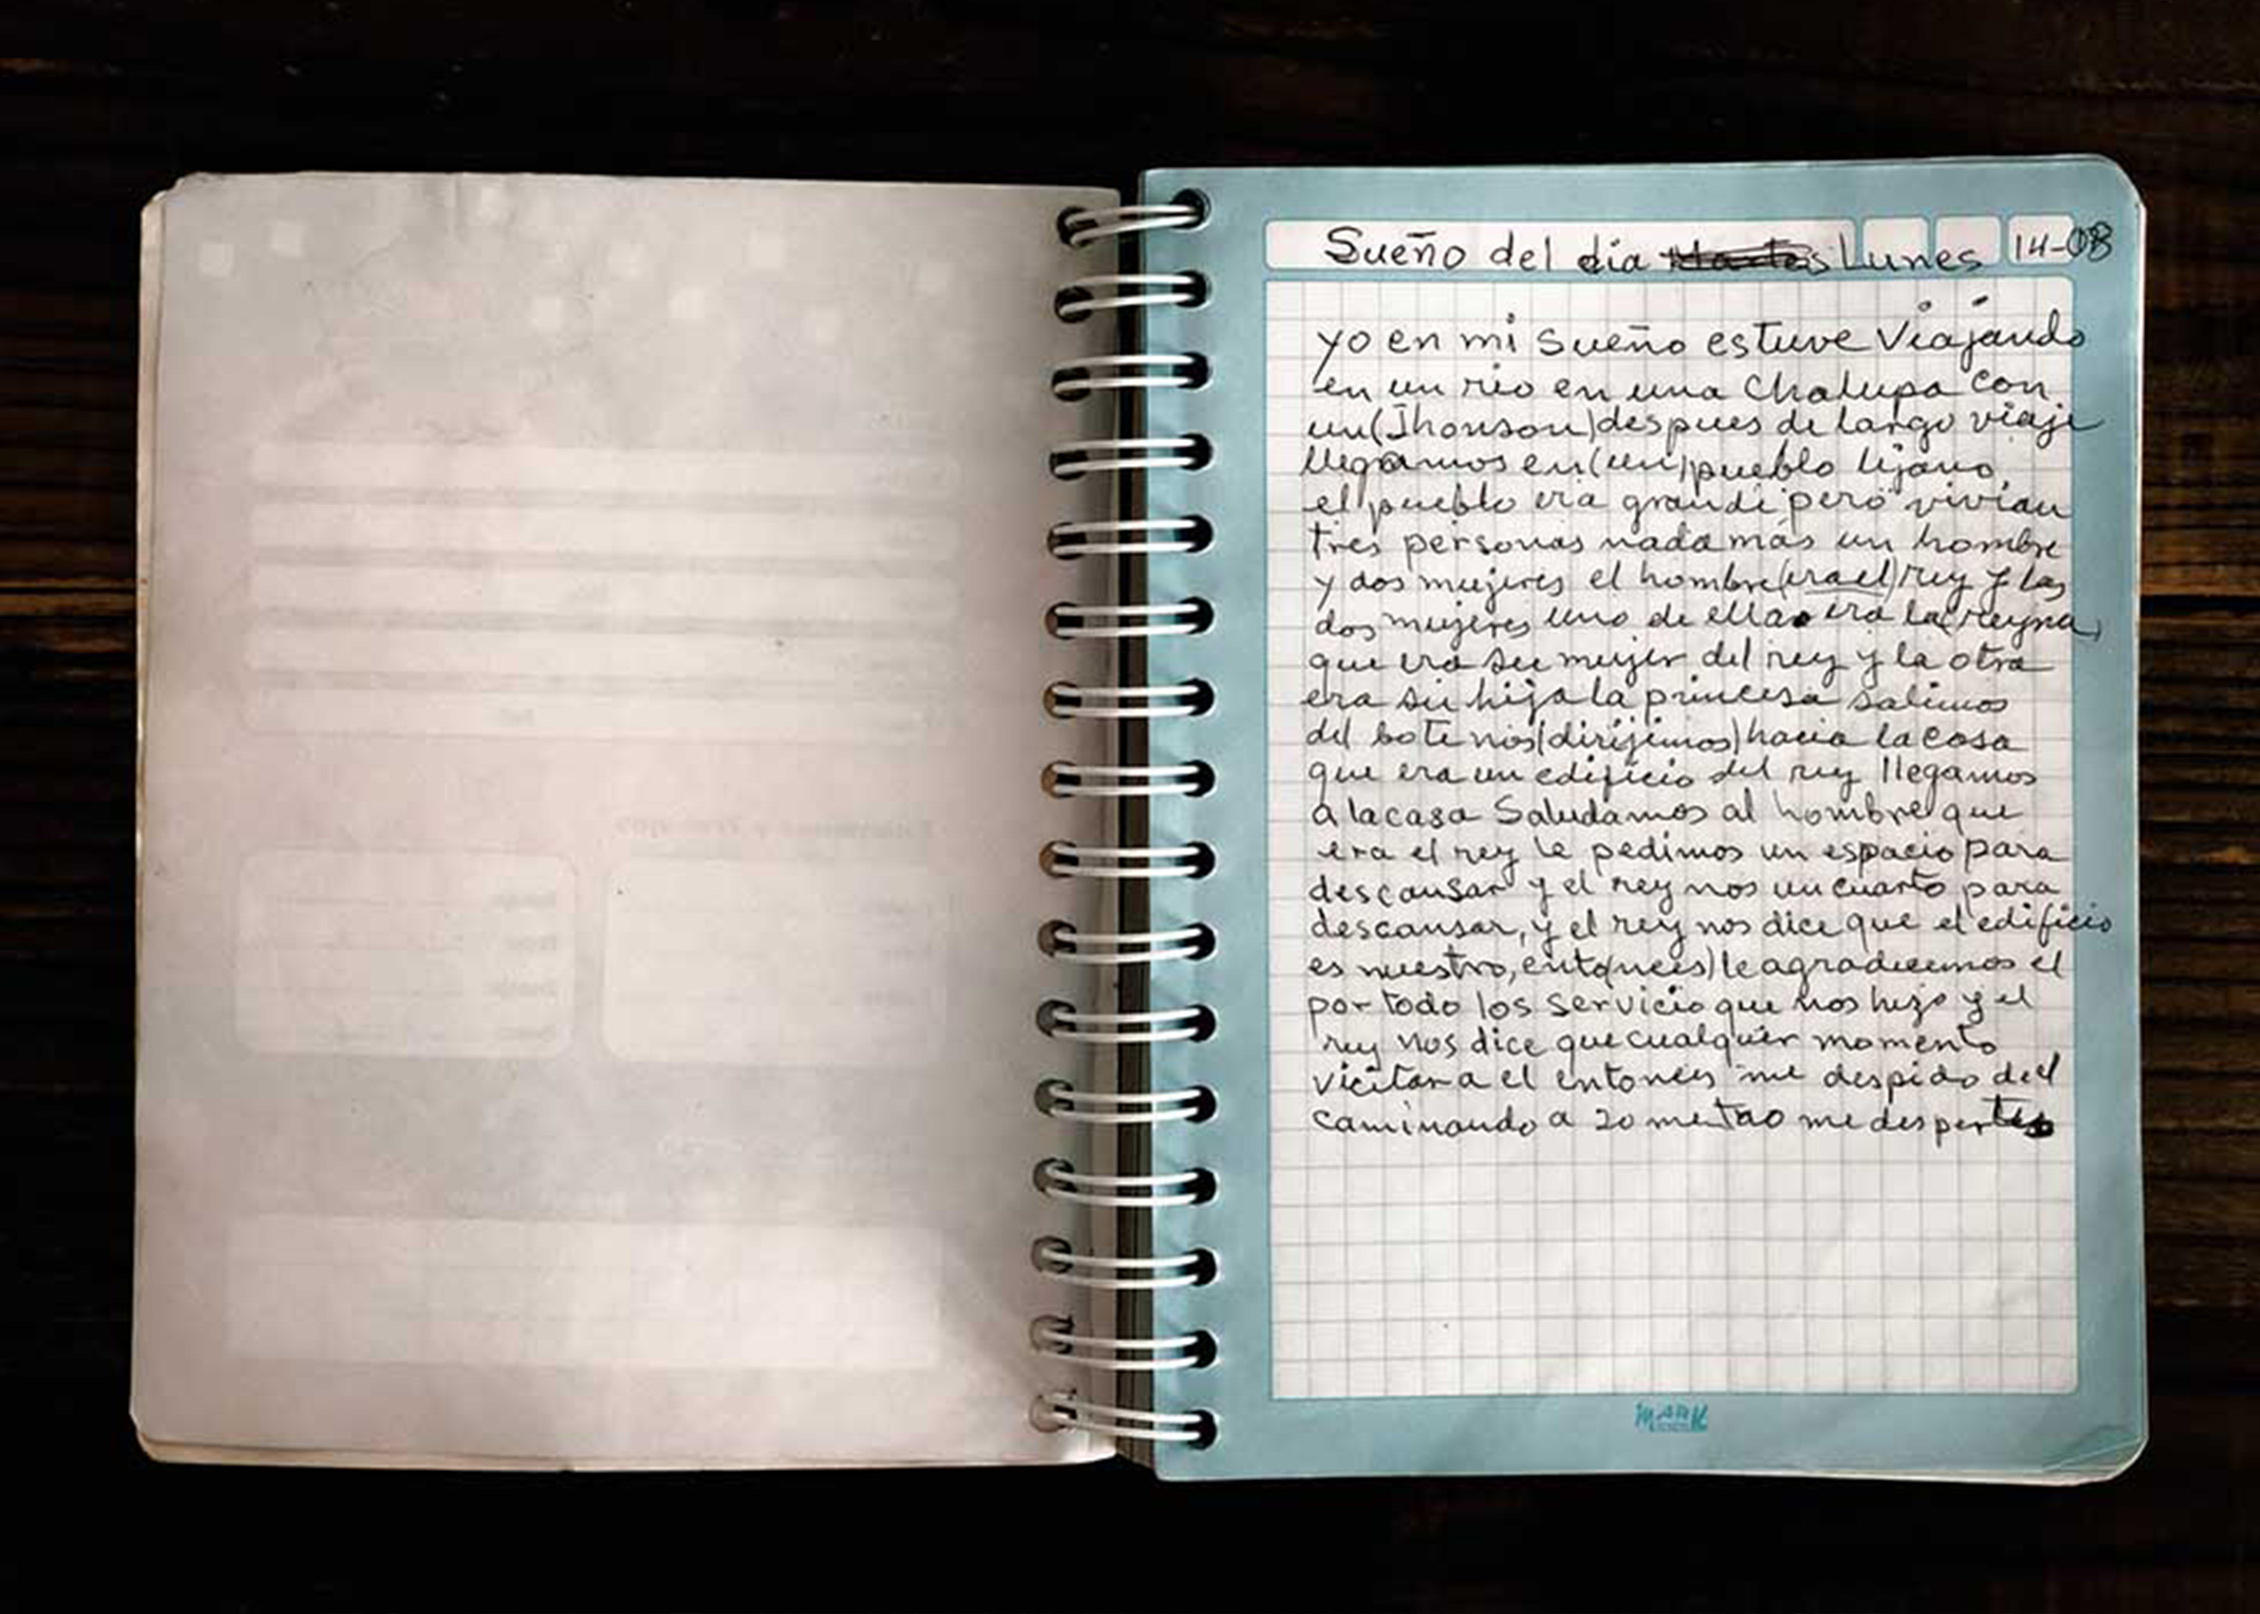 Sueño del dia Lunes 14-08
yo en mi sueño estuve viajando
en un rio en una chalupa con
un (Jhonson) despues de largo viaje
llegamos en (un) pueblo lejano
el pueblo era grande pero vivian
tres personas nada más un hombre
y dos mujeres el hombre (era el) rey y las
dos mujeres uno de ellas era la (reyna)
que era su mujer del rey y la otra
era su hija la princesa salimos
del bote nos (dirijimos) hacia la casa
que era un edificio del rey llegamos
a la casa Saludamos al hombre que
era el rey le pedimos un espacio para
descansar y el rey nos un cuarto para
descansar, y el rey nos dice que el edificio
es nuestro, ento(nces) le agradecemos el
por todo los servicio que nos hizo y el
rey nos dice que cualquier momento
vicitar a el entonces me despido del
caminando a 20 metro me desperte
MARK